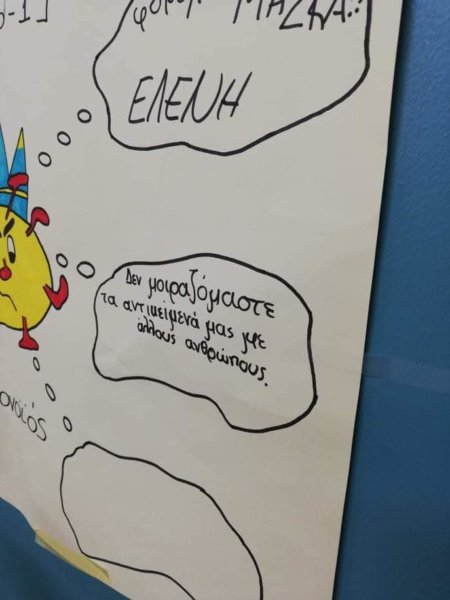 -11
ΜΑΣΚΑ..:
ΕΛΕΝΗ
Δεν μοιραζόμαστε
τα αντικείμενά μας με
άλλους ανθρώπους.